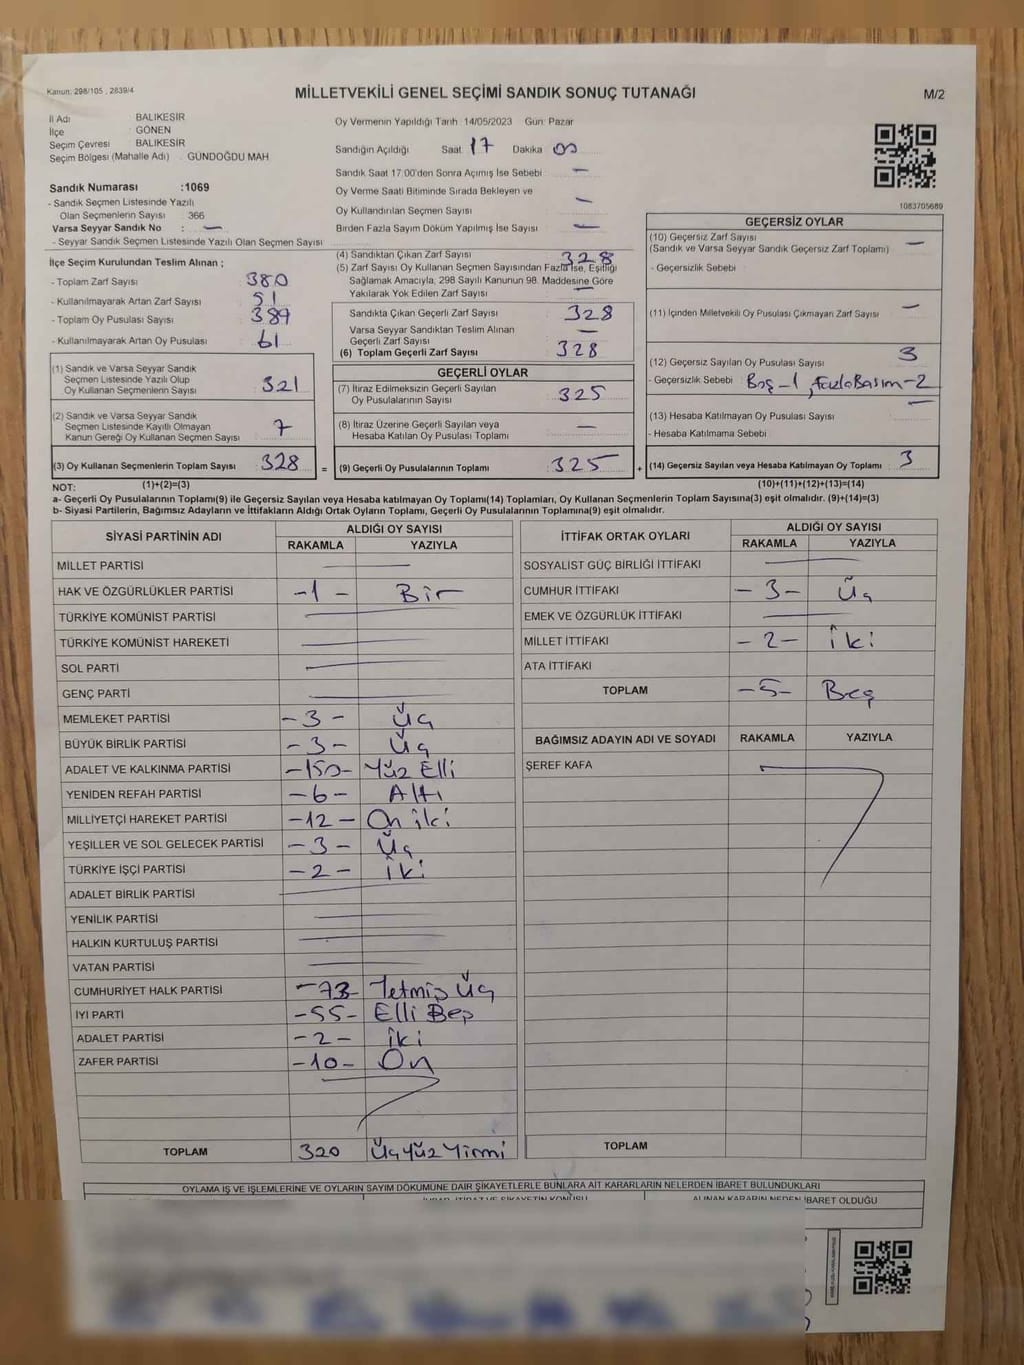 Kanun: 298/105 , 2839/4
MİLLETVEKİLİ GENEL SEÇİMİ SANDIK SONUÇ TUTANAĞI
M/2
İl Adı BALIKESİR
İlçe GÖNEN
Seçim Çevresi BALIKESİR
Seçim Bölgesi (Mahalle Adı) GÜNDOĞDU MAH
Oy Vermenin Yapıldığı Tarih 14/05/2023 Gün: Pazar
Sandığın Açıldığı Saat 17 Dakika 00
Sandık Saat 17:00'den Sonra Açımış İse Sebebi -
Oy Verme Saati Bitiminde Sırada Bekleyen ve
Oy Kullandırılan Seçmen Sayısı -
Birden Fazla Sayım Döküm Yapılmış İse Sayısı -
1083705689
Sandık Numarası :1069
- Sandık Seçmen Listesinde Yazılı
Olan Seçmenlerin Sayısı : 366
Varsa Seyyar Sandık No : -
- Seyyar Sandık Seçmen Listesinde Yazılı Olan Seçmen Sayısı
İlçe Seçim Kurulundan Teslim Alınan ;
- Toplam Zarf Sayısı 380
- Kullanılmayarak Artan Zarf Sayısı 51
- Toplam Oy Pusulası Sayısı 389
- Kullanılmayarak Artan Oy Pusulası 61
(1) Sandık ve Varsa Seyyar Sandık
Seçmen Listesinde Yazılı Olup
Oy Kullanan Seçmenlerin Sayısı 321
(2) Sandık ve Varsa Seyyar Sandık
Seçmen Listesinde Kayıtlı Olmayan
Kanun Gereği Oy Kullanan Seçmen Sayısı 7
(3) Oy Kullanan Seçmenlerin Toplam Sayısı 328 =
(4) Sandıktan Çıkan Zarf Sayısı 328
(5) Zarf Sayısı Oy Kullanan Seçmen Sayısından Fazla İse, Eşitliği
Sağlamak Amacıyla, 298 Sayılı Kanunun 98. Maddesine Göre
Yakılarak Yok Edilen Zarf Sayısı -
Sandıkta Çıkan Geçerli Zarf Sayısı 328
Varsa Seyyar Sandıktan Teslim Alınan
Geçerli Zarf Sayısı -
(6) Toplam Geçerli Zarf Sayısı 328
GEÇERLİ OYLAR
(7) İtiraz Edilmeksizin Geçerli Sayılan
Oy Pusulalarının Sayısı 325
(8) İtiraz Üzerine Geçerli Sayılan veya
Hesaba Katılan Oy Pusulası Toplamı -
(9) Geçerli Oy Pusulalarının Toplamı 325 +
GEÇERSİZ OYLAR
(10) Geçersiz Zarf Sayısı
(Sandık ve Varsa Seyyar Sandık Geçersiz Zarf Toplamı) -
- Geçersizlik Sebebi
(11) İçinden Milletvekili Oy Pusulası Çıkmayan Zarf Sayısı -
(12) Geçersiz Sayılan Oy Pusulası Sayısı 3
- Geçersizlik Sebebi Boş-1, Fazla Basım-2
(13) Hesaba Katılmayan Oy Pusulası Sayısı -
- Hesaba Katılmama Sebebi
(14) Geçersiz Sayılan veya Hesaba Katılmayan Oy Toplamı 3
NOT: (1)+(2)=(3) (10)+(11)+(12)+(13)=(14)
a- Geçerli Oy Pusulalarının Toplamı(9) ile Geçersiz Sayılan veya Hesaba katılmayan Oy Toplamı(14) Toplamları, Oy Kullanan Seçmenlerin Toplam Sayısına(3) eşit olmalıdır. (9)+(14)=(3)
b- Siyasi Partilerin, Bağımsız Adayların ve İttifakların Aldığı Ortak Oyların Toplamı, Geçerli Oy Pusulalarının Toplamına(9) eşit olmalıdır.
SİYASİ PARTİNİN ADI ALDIĞI OY SAYISI
RAKAMLA YAZIYLA
MİLLET PARTİSİ
HAK VE ÖZGÜRLÜKLER PARTİSİ -1- Bir
TÜRKİYE KOMÜNİST PARTİSİ
TÜRKİYE KOMÜNİST HAREKETİ
SOL PARTİ
GENÇ PARTİ
MEMLEKET PARTİSİ -3- Üç
BÜYÜK BİRLİK PARTİSİ -3- Üç
ADALET VE KALKINMA PARTİSİ -150- Yüz Elli
YENİDEN REFAH PARTİSİ -6- Altı
MİLLİYETÇİ HAREKET PARTİSİ -12- On iki
YEŞİLLER VE SOL GELECEK PARTİSİ -3- Üç
TÜRKİYE İŞÇİ PARTİSİ -2- İki
ADALET BİRLİK PARTİSİ
YENİLİK PARTİSİ
HALKIN KURTULUŞ PARTİSİ
VATAN PARTİSİ
CUMHURİYET HALK PARTİSİ -73- Yetmiş Üç
İYİ PARTİ -55- Elli Beş
ADALET PARTİSİ -2- İki
ZAFER PARTİSİ -10- On
TOPLAM 320 Üç Yüz Yirmi
İTTİFAK ORTAK OYLARI ALDIĞI OY SAYISI
RAKAMLA YAZIYLA
SOSYALİST GÜÇ BİRLİĞİ İTTİFAKI
CUMHUR İTTİFAKI -3- Üç
EMEK VE ÖZGÜRLÜK İTTİFAKI
MİLLET İTTİFAKI -2- İki
ATA İTTİFAKI
TOPLAM -5- Beş
BAĞIMSIZ ADAYIN ADI VE SOYADI RAKAMLA YAZIYLA
ŞEREF KAFA
TOPLAM
OYLAMA İŞ VE İŞLEMLERİNE VE OYLARIN SAYIM DÖKÜMÜNE DAİR ŞİKAYETLERLE BUNLARA AİT KARARLARIN NELERDEN İBARET BULUNDUKLARI
ALINAN KARARIN NEDEN İBARET OLDUĞU